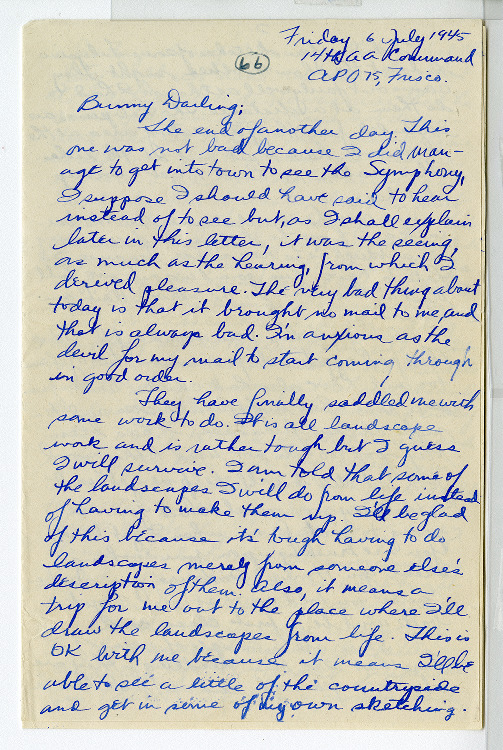 Friday 6 July 1945
14th AA Command
APO 75, Frisco.
66
Bunny Darling;
The end of another day. This
one was not bad because I did man-
age to get into town to see the Symphony,
I suppose I should have said to hear
instead of to see but, as I shall explain
later in this letter, it was the seeing,
as much as the hearing, from which I
derived pleasure. The very bad thing about
today is that it brought no mail to me, and
that is always bad. I'm anxious as the
devil for my mail to start coming through
in good order.
They have finally saddled me with
some work to do. It is all landscape
work and is rather tough but I guess
I will survive. I am told that some of
the landscapes I will do from life instead
of having to make them up. I'll be glad
of this because its tough having to do
landscapes merely from someone else's
description of them. Also, it means a
trip for me out to the place where I'll
draw the landscapes from life. This is
OK with me because it means I'll be
able to see a little of the countryside
and get in some of my own sketching.